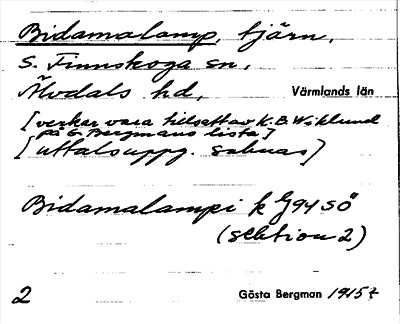 Bidamalamp, tjärn,
S. Finnskoga sn,
Älvdals hd, Värmlands län
[verkar vara tillsatt av K.B. Wiklund
på G. Bergmans lista]
[uttalsuppg. saknas]
Bidamalampi k G94 SÖ
(sektion 2)
2 Gösta Bergman 1915?